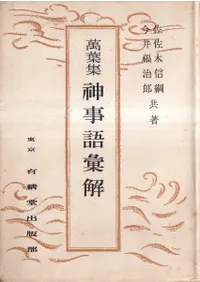 佐佐木信綱
今井福治郎 共著
萬葉集
神事語彙解
東京 有精堂出版部